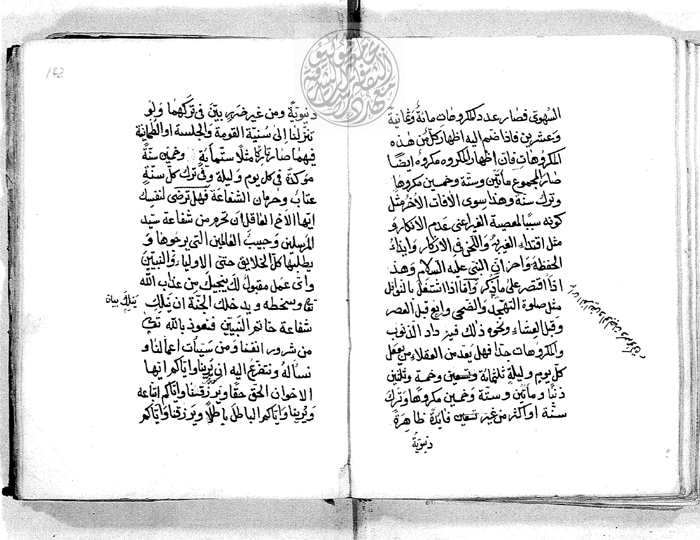 السهوى فصار عدد المكروهات مائة وثمانية
وعشرين فاذا ضم اليه اظهار كل من هذه
المكروهات فان اظهار المكروه مكروه ايضا
صار المجموع مأتين وستة وخمسين مكروها
وترك سنة وهذا سوى الافات الاخر مثل
كونه سببا لمعصية الغير اعنى عدم الانكار و
مثل اقتداء الغير به واللحن فى الاذكار وايذاء
الحفظة واحزان النبى عليه السلام وهذا
اذا اقتصر على ما ذكر واما اذا اشتغل بالنوافل
مثل صلوة التهجد والضحى واربع قبل العصر
وقبل العشاء ونحو ذلك فيزداد الذنوب
والمكروهات جدا فهل يعد من العقلاء من يفعل
كل يوم وليلة ثلثمائة وتسعين وخمسة وثلثين
ذنبا ومأتين وستة وخمسين مكروها وترك
سنة او اكثر من غير فايدة ظاهرة
دنيوية
152
دنيوية ومن غير ضرر بين فى تركها ولو
تنزلنا الى سنية القومة والجلسة او الطمانية
فيهما صار تاركا مثلا ستمائة وخمسين سنة
مؤكدة فى كل يوم وليلة وفى ترك كل سنة
عتاب وحرمان الشفاعة فهل ترضى لنفسك
ايها الاخ العاقل ان تحرم من شفاعة سيد
المرسلين وحبيب رب العالمين التى يرجوها و
يطلبها كل الخلايق حتى الاولياء والنبيين
واى عمل مقبول لك ينجيك من عذاب الله
تع وسخطه ويدخلك الجنة ان ينلك
شفاعة خاتم النبيين فنعوذ بالله تع
من شرور انفسنا ومن سيئات اعمالنا و
نسأله ونتضرع اليه ان يرينا واياكم ايها
الاخوان الحق حقا ويرزقنا واياكم اتباعه
ويرينا واياكم الباطل باطلا ويرزقنا واياكم